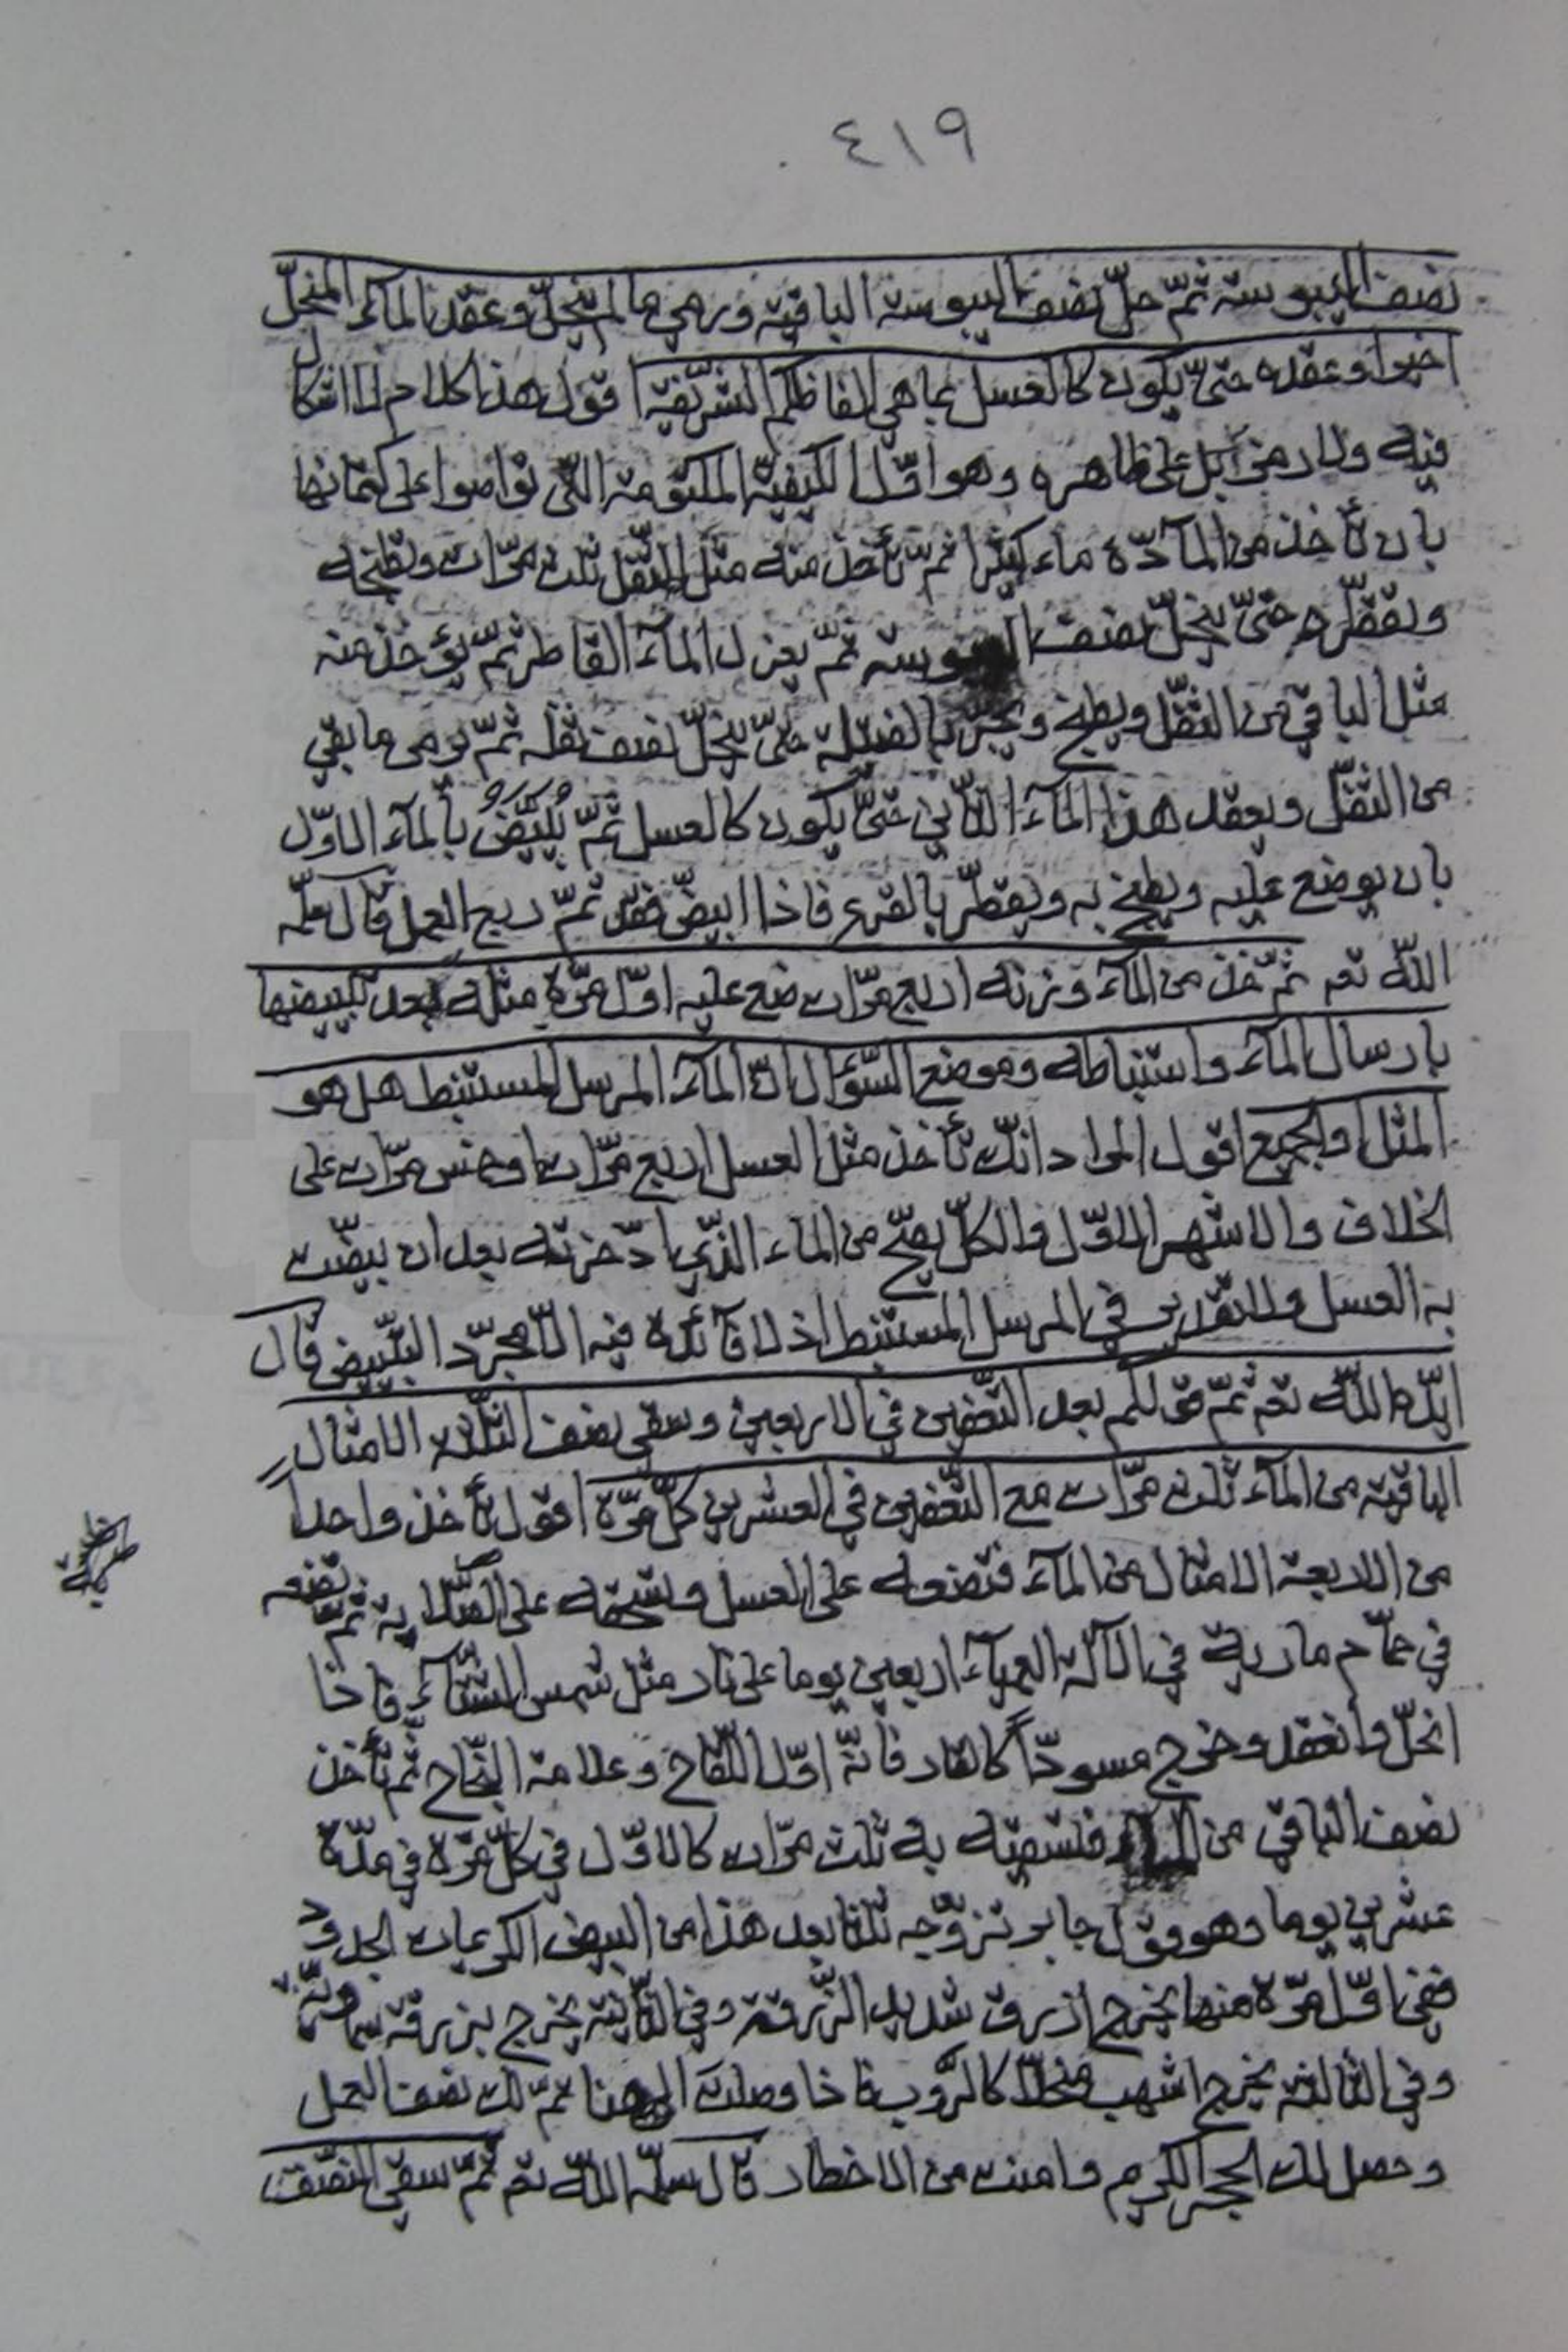 ٤١٩
نصف اليبوسته ثمّ حلّ نصف اليبوسة الباقية ورمي مالم ينحلّ وعقد الماء المنحلّ
اخيرا وعقده حتّى يكون كالعسل بما هي الفاظكم الشريفة اقول هذا كلام لا اشكال
فيه ولا رمز بل على ظاهره وهو اوّل الكيفيّة المكتومة الّتي تواصوا على كتمانها
بان تأخذ من المآدّة ماء كثيرا ثمّ تأخذ منه مثل الثفل ثلث مرّات وتطبخه
وتقطّره حتّى ينحلّ نصف اليبوسته ثمّ يعزل المآء القاطر ثمّ يؤخذ منه
مثل الباقي من الثفل ويطبخ ويجرّ بالفتيلة حتّى ينحلّ نصف ثفله ثمّ يرمى ما بقي
من الثفل ويعقد هذا المآء الثّاني حتّى يكون كالعسل ثمّ يُبَيَّضُ بالمآء الاوّل
بان يوضع عليه ويطبخ به ويقطّر بالقرع فاذا ابيضّ فقد تمّ ربع العمل قال سلّمه
اللّه تعم ثمّ خذ من المآء وزنه اربع مرّات ضع عليه اوّل مرّة مثله بعد تبييضها
بارسال المآء واستنباطه وموضع السّؤال انّ المآء المرسل المستنبط هل هو
المثل او الجميع اقول المراد انّك تأخذ مثل العسل اربع مرّات او خمس مرّات على
الخلاف والاشهر الاوّل والكلّ يصحّ من الماء الذّي ادّخرته بعد ان بيّضت
به العسل وللتقدير في المرسل المستنبط اذ لا فآئدة فيه الّا مجرّد التبييض قال
ايّده اللّه تعم ثمّ قولكم بعد التّعفين في الاربعين وسقي نصف الثّلاثة الامثال
الباقية من المآء ثلث مرّات مع التّعفين في العشرين كلّ مرّة اقول تأخذ واحدا
من الاربعة الامثال من المآء فتضعه على العسل وتسحقه على الصّلاية ثمّ تضعه
في حمّام مارية في الآلة العميآء اربعين يوما على نار مثل شمس الشتآء فاذا
انحلّ وانعقد وخرج مسودّاً كالقار فانّه اوّل اللّقاح وعلامة النّجاح ثمّ تأخذ
نصف الباقي من المآء فتسقيه به ثلث مرّات كالاوّل في كلّ مرّة في مدّة
عشرين يوما وهو قول جابر تزوّجه ثلثا بعد هذا من البيض الكريمات الجدود
ففي اوّل مرّة منها يخرج ازرق شديد الزّرقة وفي الثّانية يخرج بزرقة سماويّة
وفي الثّالثة يخرج اشهب منحلّا كالرّوب فاذا وصلت الى هنا تمّ لك نصف العمل
وحصل لك الحجر الكريم وامنت من الاخطار قال سلّمه اللّه تعم ثمّ سقي النّصف